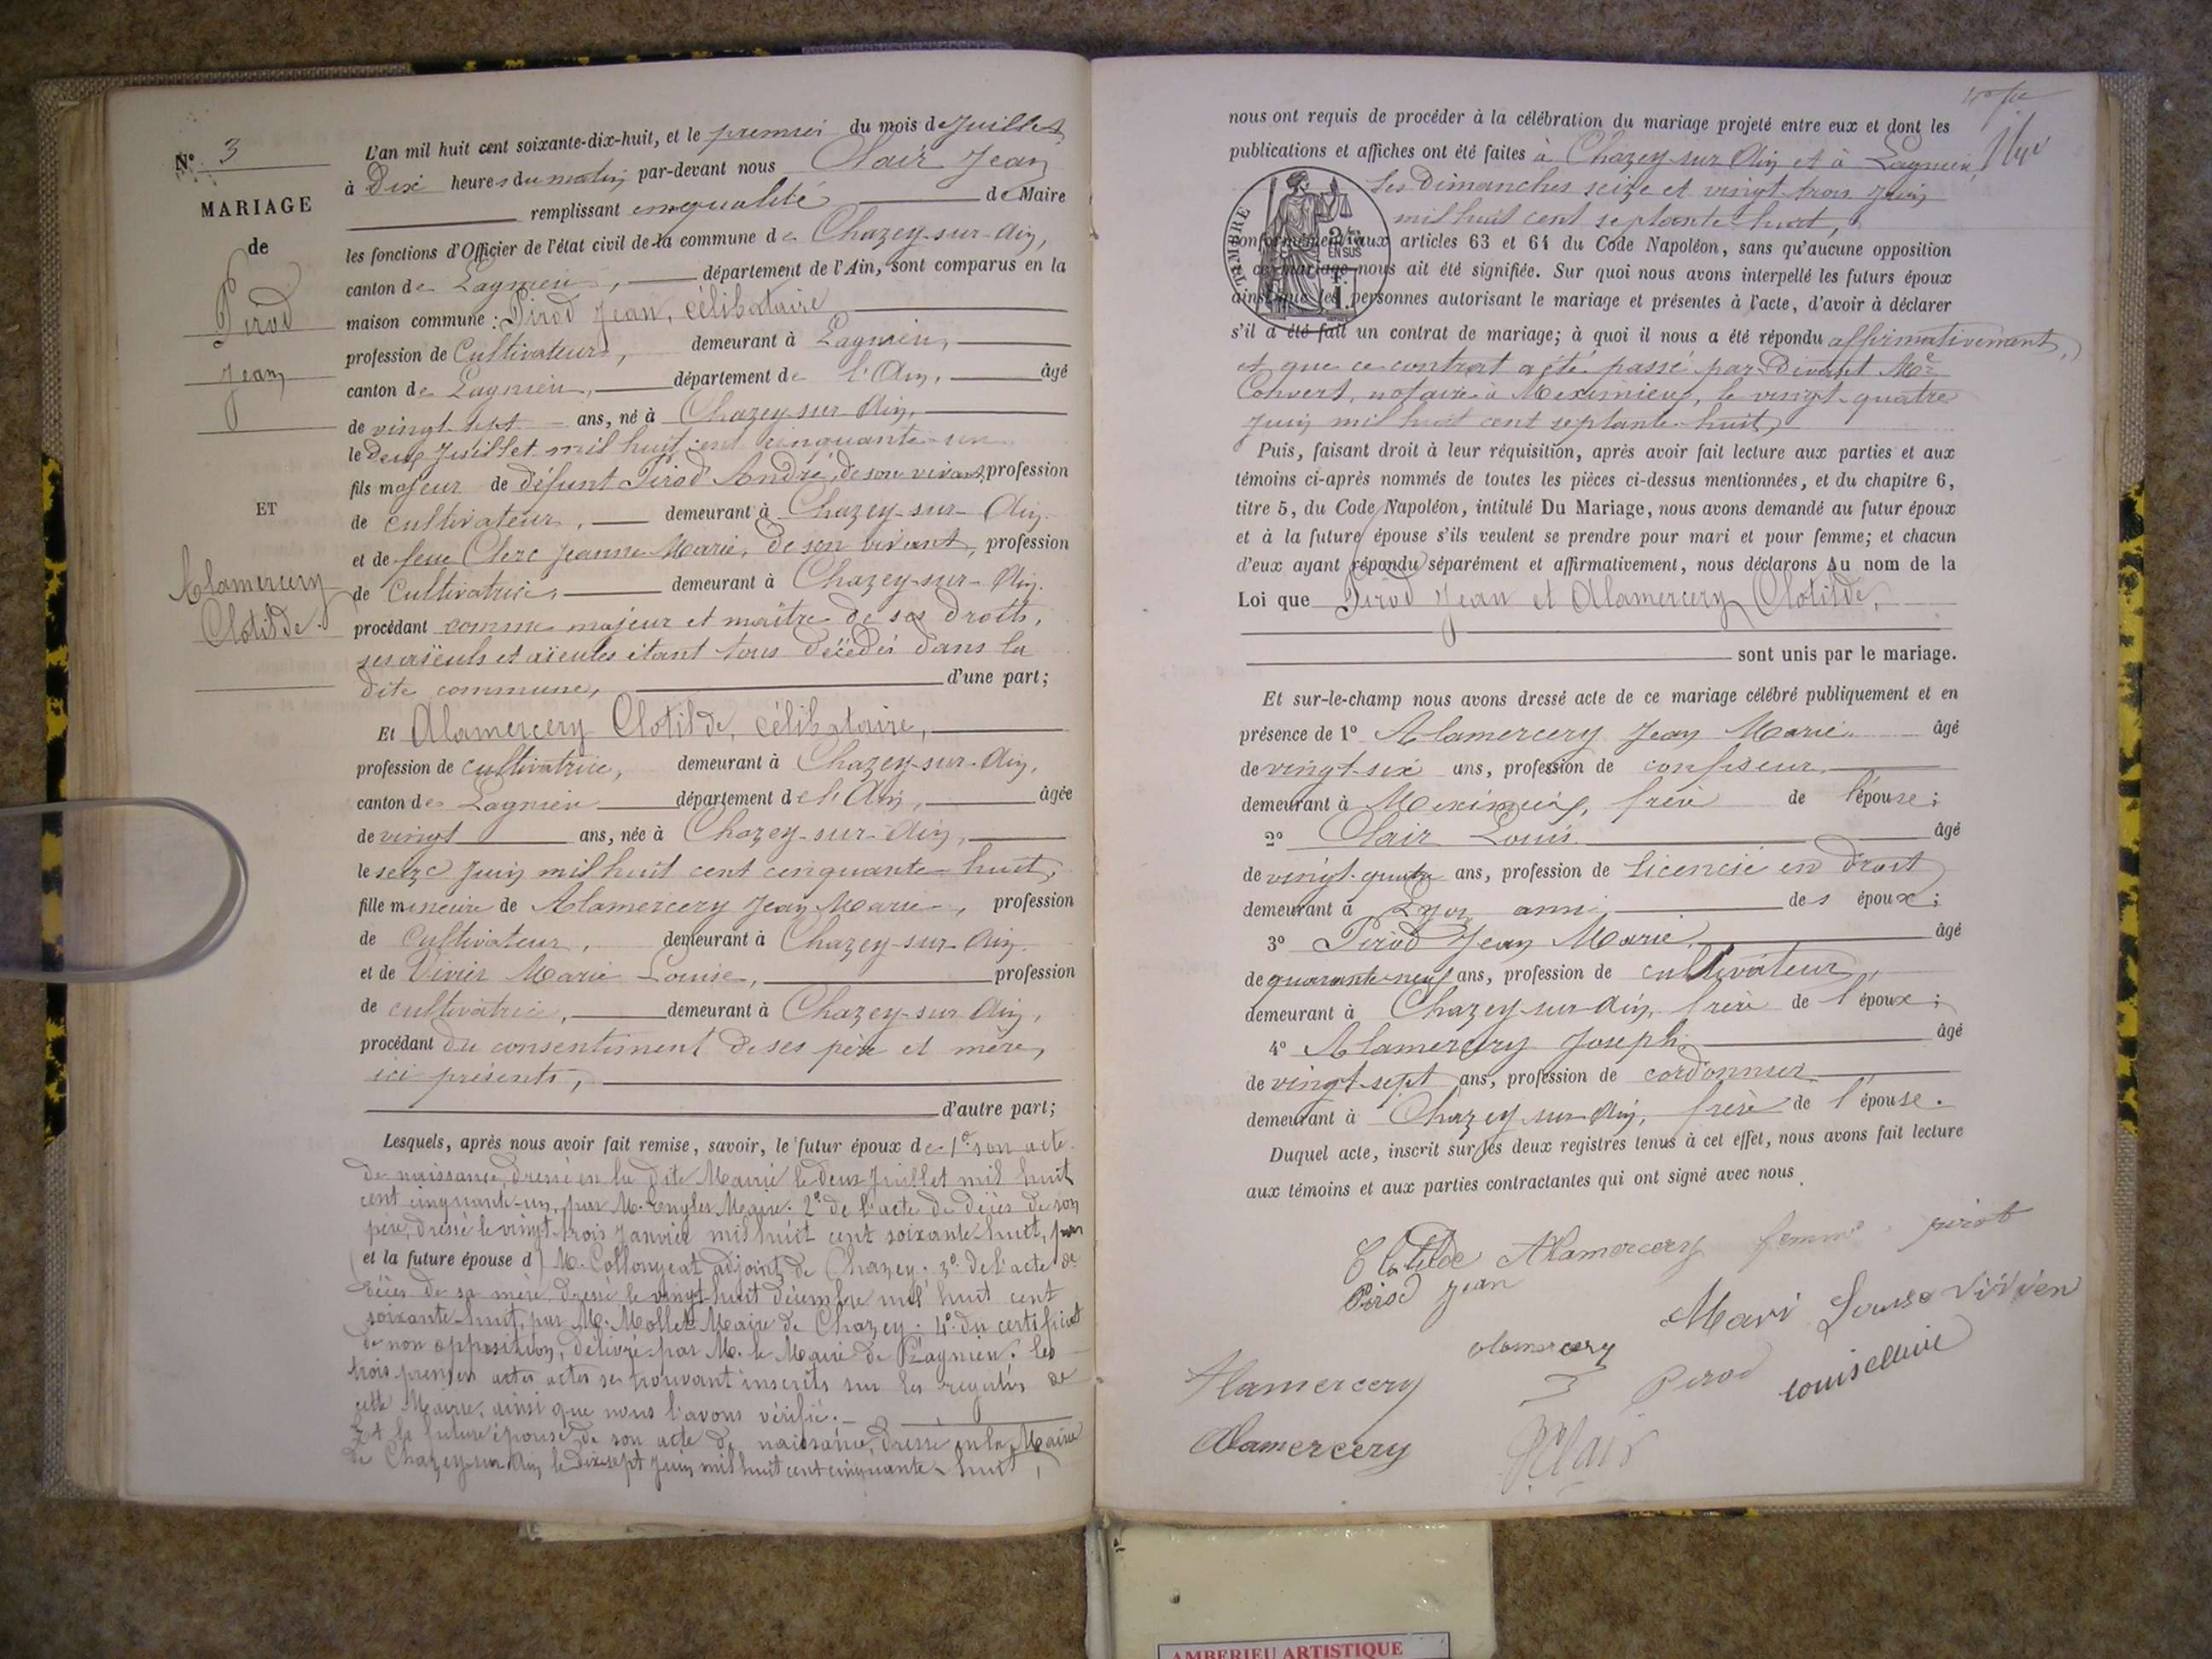 N° 3
MARIAGE
de
Pirod
Jean
ET
Alamercery
Clotilde.
L'an mil huit cent soixante-dix-huit, et le premier du mois de Juillet
à Dix heures du matin par-devant nous Clair Jean
remplissant en qualité de Maire
les fonctions d'Officier de l'état civil de la commune de Chazey-sur-Ain,
canton de Lagnieu, département de l'Ain, sont comparus en la
maison commune : Pirod Jean, célibataire
profession de Cultivateur, demeurant à Lagnieu,
canton de Lagnieu, département de l'Ain, âgé
de vingt-sept ans, né à Chazey-sur-Ain,
le deux Juillet mil huit cent cinquante-un
fils majeur de défunt Pirod André, de son vivant, profession
de cultivateur, demeurant à Chazey-sur-Ain.
et de feue Clerc Jeanne Marie, de son vivant, profession
de Cultivatrice, demeurant à Chazey-sur-Ain.
procédant comme majeur et maître de ses droits,
ses aïeuls et aïeules étant tous décédés dans la
dite commune, d'une part;
Et Alamercery Clotilde, célibataire,
profession de cultivatrice, demeurant à Chazey-sur-Ain,
canton de Lagnieu département de l'Ain, âgée
de vingt ans, née à Chazey-sur-Ain,
le seize Juin mil huit cent cinquante-huit,
fille mineure de Alamercery Jean Marie, profession
de Cultivateur, demeurant à Chazey-sur-Ain.
et de Vivier Marie Louise, profession
de cultivatrice, demeurant à Chazey-sur-Ain,
procédant du consentement de ses père et mère,
ici présents,
d'autre part;
Lesquels, après nous avoir fait remise, savoir, le futur époux de 1° son acte
de naissance, dressé en la dite Mairie le deux Juillet mil huit
cent cinquante-un, par M. Maire. 2° de l'acte de décès de son
père, dressé le vingt-trois Janvier mil huit cent soixante-huit, par
et la future épouse d M. Collonyeat adjoint de Chazey. 3° de l'acte de
décès de sa mère, dressé le vingt-huit décembre mil huit cent
soixante-huit, par M. Mollet Maire de Chazey. 4° du certificat
de non opposition, délivré par M. le Maire de Lagnieu. les
trois premiers actes actes se trouvant inscrits sur les registres de
cette Mairie, ainsi que nous l'avons vérifié.
Et la future épouse de son acte de naissance, dressé en la Mairie
de Chazey-sur-Ain le dix-sept Juin mil huit cent cinquante-huit,
nous ont requis de procéder à la célébration du mariage projeté entre eux et dont les
publications et affiches ont été faites à Chazey-sur-Ain et à Lagnieu,
les Dimanches seize et vingt-trois Juin
mil huit cent septante-huit,
TIMBRE
2/10
EN SUS
conformément aux articles 63 et 64 du Code Napoléon, sans qu'aucune opposition
à ce mariage nous ait été signifiée. Sur quoi nous avons interpellé les futurs époux
ainsi que les personnes autorisant le mariage et présentes à l'acte, d'avoir à déclarer
s'il a été fait un contrat de mariage; à quoi il nous a été répondu affirmativement,
et que ce contrat a été passé par-devant Me
Convert, notaire à Meximieux, le vingt-quatre
Juin mil huit cent septante-huit,
Puis, faisant droit à leur réquisition, après avoir fait lecture aux parties et aux
témoins ci-après nommés de toutes les pièces ci-dessus mentionnées, et du chapitre 6,
titre 5, du Code Napoléon, intitulé Du Mariage, nous avons demandé au futur époux
et à la future épouse s'ils veulent se prendre pour mari et pour femme; et chacun
d'eux ayant répondu séparément et affirmativement, nous déclarons Au nom de la
Loi que Pirod Jean et Alamercery Clotilde,
sont unis par le mariage.
Et sur-le-champ nous avons dressé acte de ce mariage célébré publiquement et en
présence de 1° Alamercery Jean Marie âgé
de vingt-six ans, profession de confiseur
demeurant à Meximieux, frère de l'épouse;
2° Clair Louis âgé
de vingt-quatre ans, profession de licencié en droit
demeurant à Lyon ami des époux;
3° Pirod Jean Marie, âgé
de quarante-neuf ans, profession de cultivateur,
demeurant à Chazey-sur-Ain, frère de l'époux;
4° Alamercery Joseph, âgé
de vingt-sept ans, profession de cordonnier
demeurant à Chazey-sur-Ain, frère de l'épouse.
Duquel acte, inscrit sur les deux registres tenus à cet effet, nous avons fait lecture
aux témoins et aux parties contractantes qui ont signé avec nous.
Clotilde Alamercery femme pirot
Pirod Jean
Mari Louise Vivien
alamercery
Alamercery
Pirod
Alamercery
Clair
AMBERIEU ARTISTIQUE